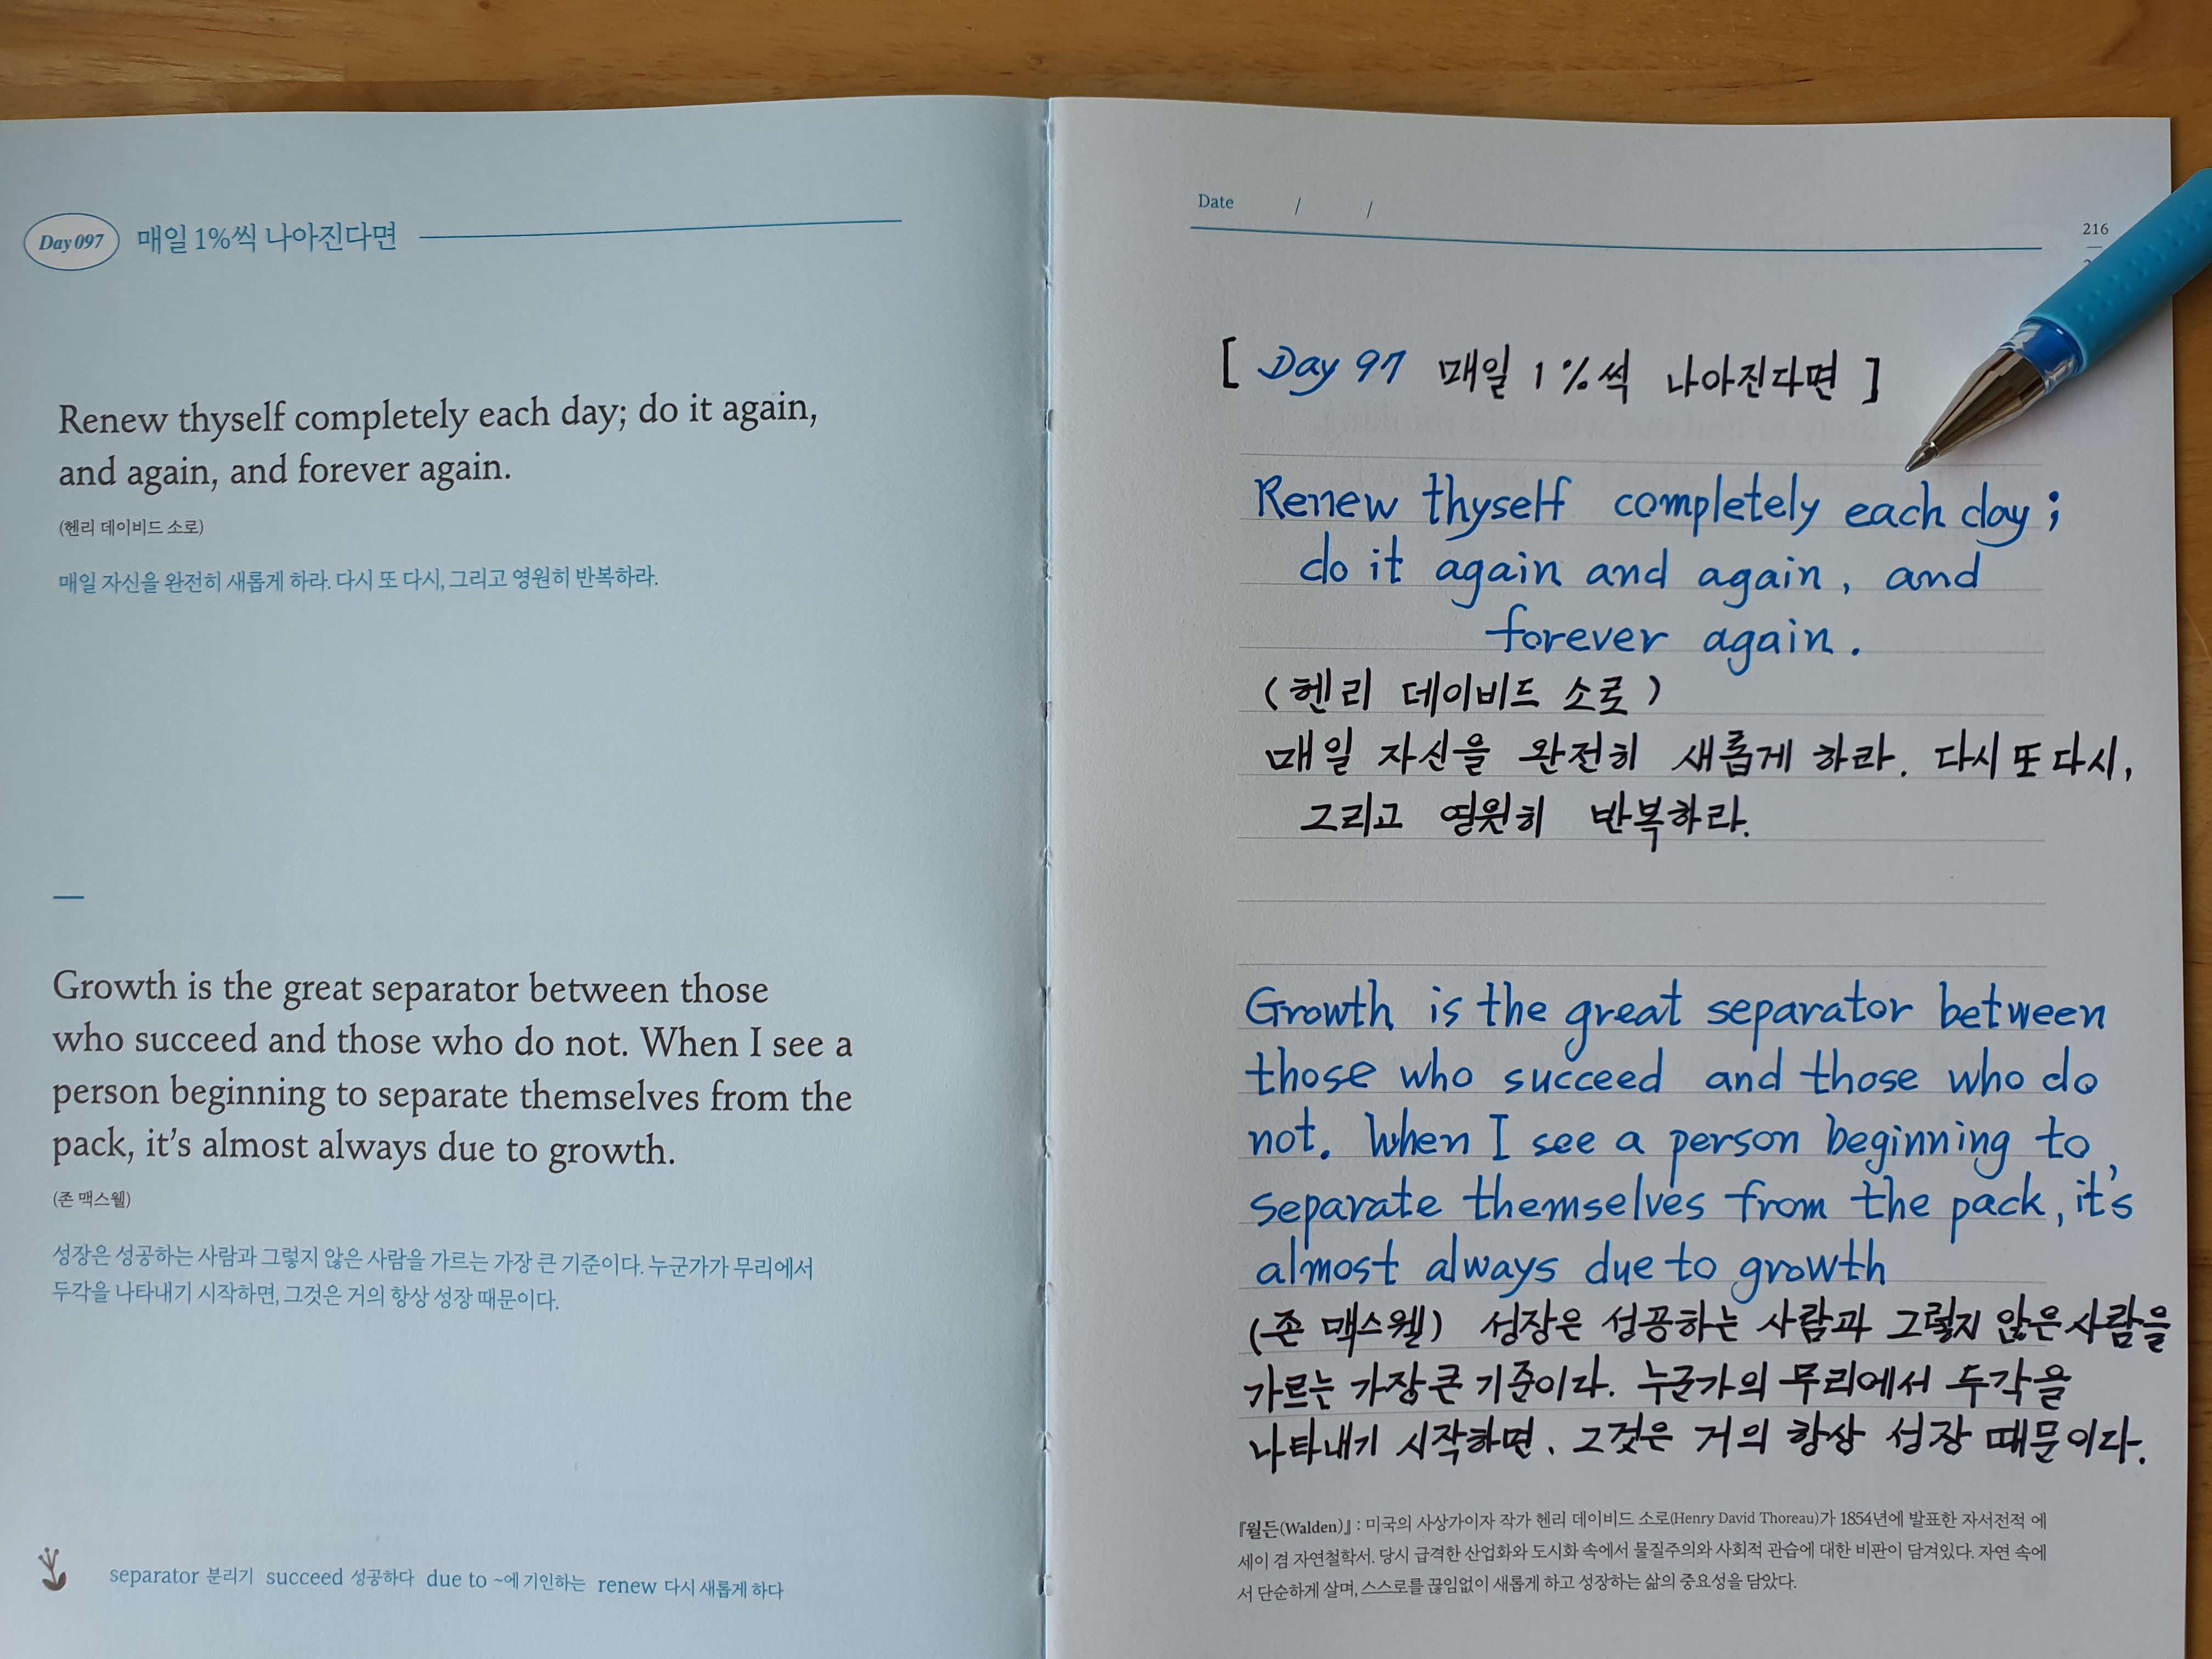 Day 097 매일 1%씩 나아진다면
Renew thyself completely each day; do it again,
and again, and forever again.
(헨리 데이비드 소로)
매일 자신을 완전히 새롭게 하라. 다시 또 다시, 그리고 영원히 반복하라.
Growth is the great separator between those
who succeed and those who do not. When I see a
person beginning to separate themselves from the
pack, it's almost always due to growth.
(존 맥스웰)
성장은 성공하는 사람과 그렇지 않은 사람을 가르는 가장 큰 기준이다. 누군가가 무리에서
두각을 나타내기 시작하면, 그것은 거의 항상 성장 때문이다.
separator 분리기 succeed 성공하다 due to ~에 기인하는 renew 다시 새롭게 하다
Date / /
216
[ Day 97 매일 1%씩 나아진다면 ]
Renew thyself completely each day;
do it again and again, and
forever again.
(헨리 데이비드 소로)
매일 자신을 완전히 새롭게 하라. 다시 또 다시,
그리고 영원히 반복하라.
Growth is the great separator between
those who succeed and those who do
not. When I see a person beginning to
separate themselves from the pack, it's
almost always due to growth
(존 맥스웰) 성장은 성공하는 사람과 그렇지 않은 사람을
가르는 가장 큰 기준이다. 누군가의 무리에서 두각을
나타내기 시작하면, 그것은 거의 항상 성장 때문이다.
『월든(Walden)』: 미국의 사상가이자 작가 헨리 데이비드 소로(Henry David Thoreau)가 1854년에 발표한 자서전적 에
세이 겸 자연철학서. 당시 급격한 산업화와 도시화 속에서 물질주의와 사회적 관습에 대한 비판이 담겨있다. 자연 속에
서 단순하게 살며, 스스로를 끊임없이 새롭게 하고 성장하는 삶의 중요성을 담았다.